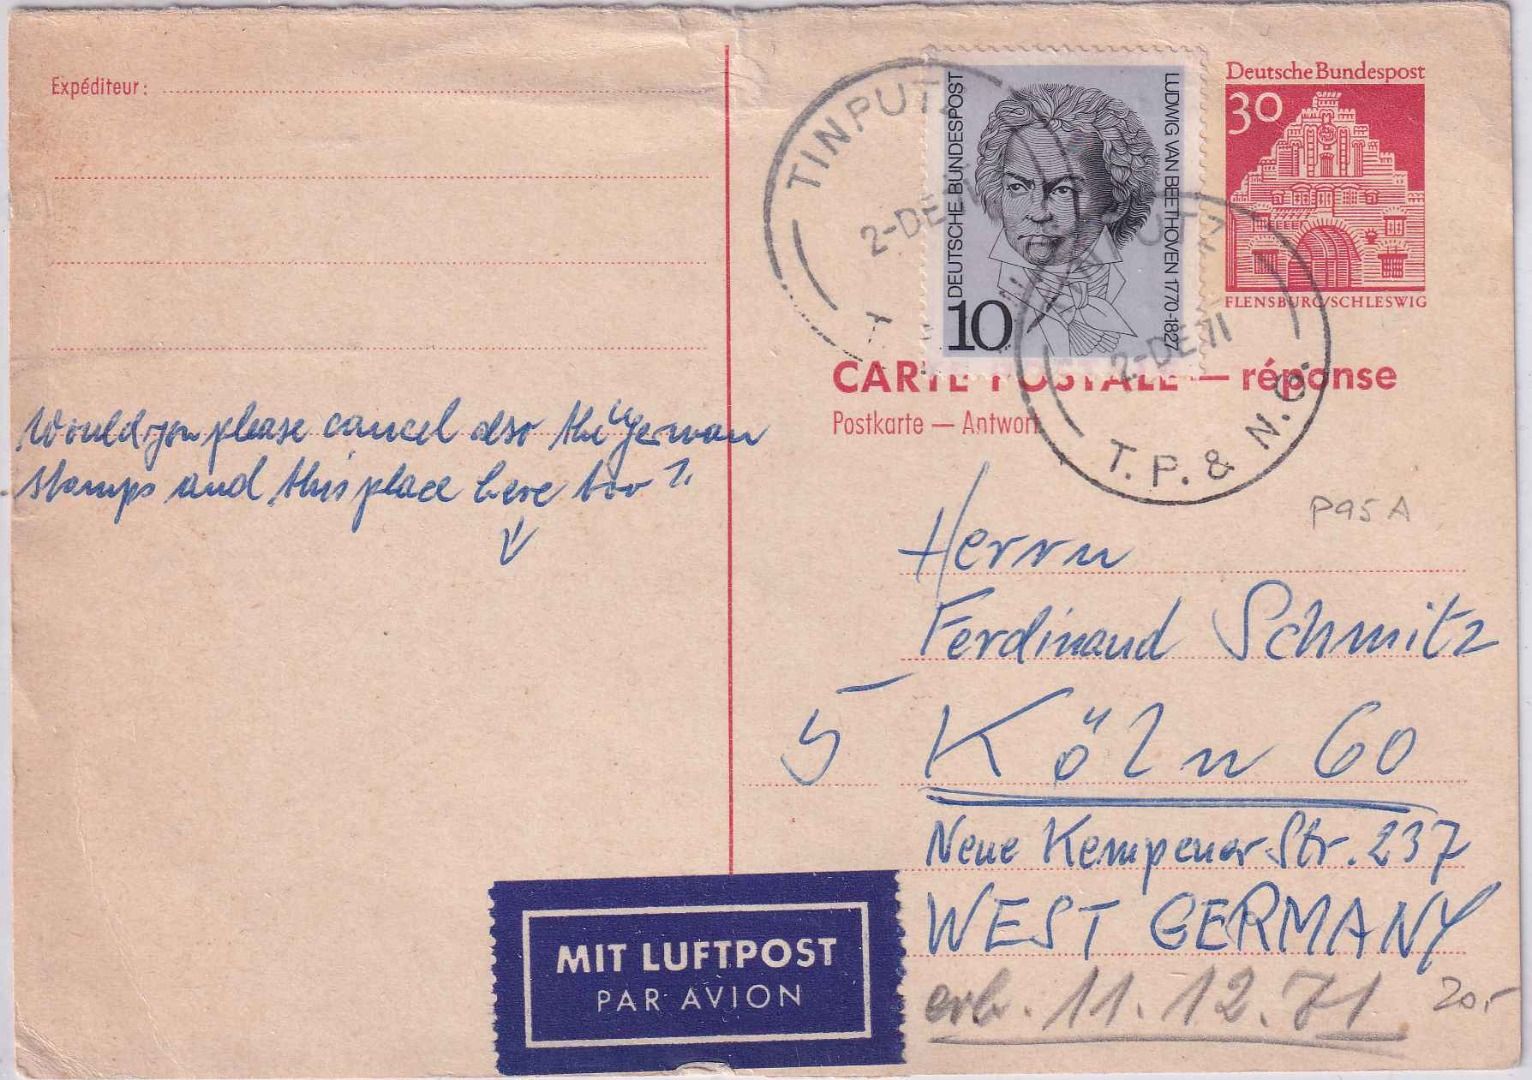 Expéditeur:
Would you please cancel also the German
stamps and this place here too?
TINPUTZ
2-DE
T
DEUTSCHE BUNDESPOST
LUDWIG VAN BEETHOVEN 1770-1827
10
Deutsche Bundespost
30
FLENSBURG/SCHLESWIG
UTZ
2-DE 71
T.P. & N.G.
CARTE POSTALE — réponse
Postkarte — Antwort
P95 A
Herrn
Ferdinand Schmitz
5 Köln 60
Neue Kempener Str. 237
WEST GERMANY
erh. 11.12.71
20,-
MIT LUFTPOST
PAR AVION